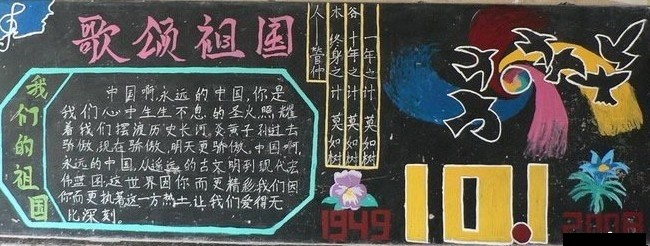 歌颂祖国
我们的祖国
中国啊,永远的中国,你是
我们心中生生不息的圣火,照耀
着我们摆渡历史长河,炎黄子孙过去
骄傲,现在骄傲,明天更骄傲。中国啊,
永远的中国,从遥远的古文明到现代宏
伟蓝图,这世界因你而更精彩,我们因
你而更执着,这一方热土,让我们爱得无
比深刻.
一年之计 莫如树
谷 十年之计 莫如树
木 终身之计 莫如树
人——管仲
1949
10.1
2008